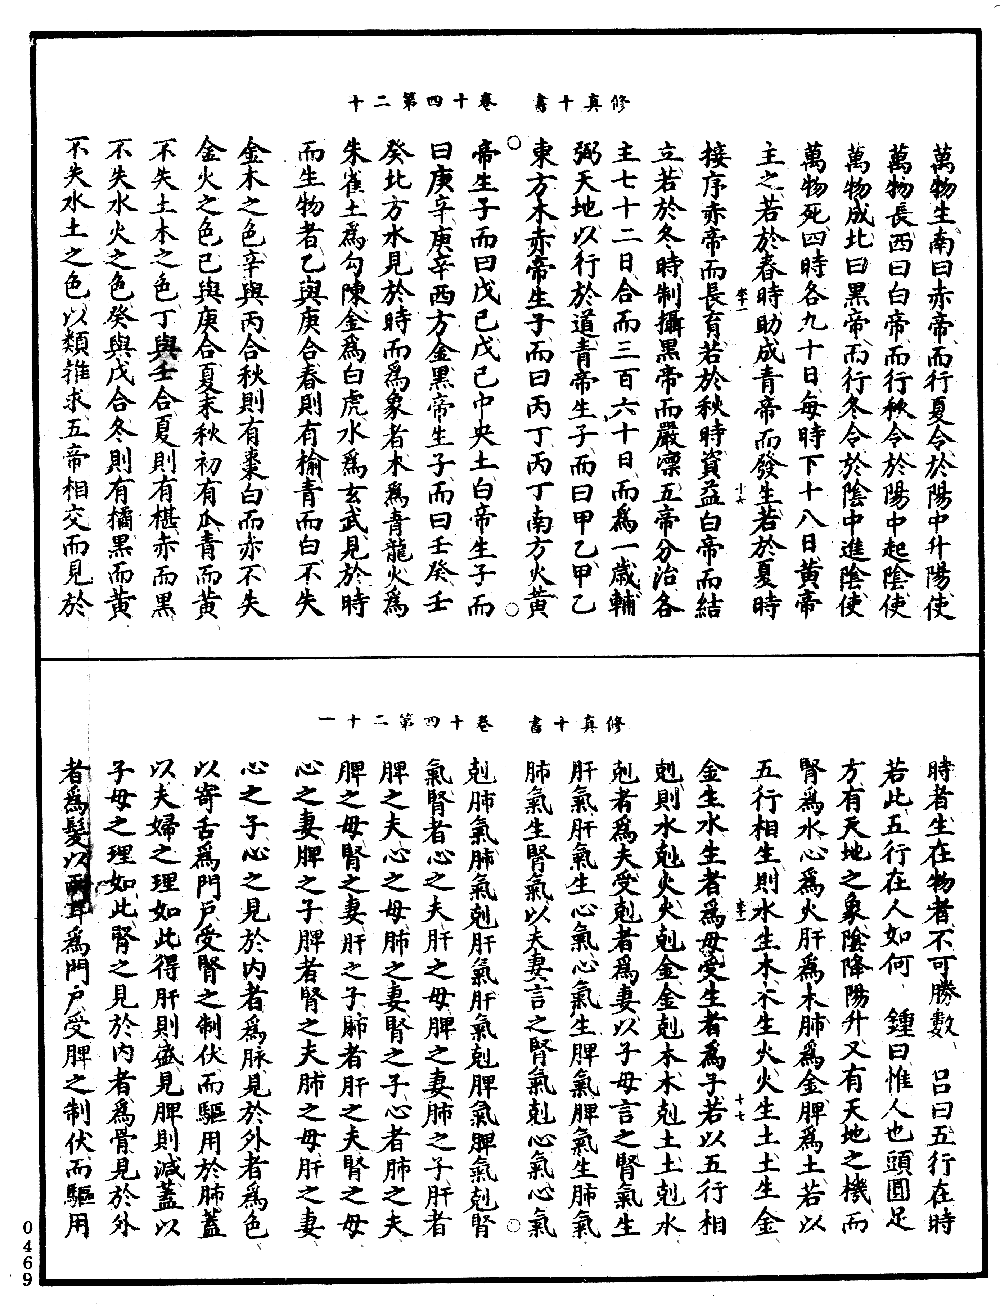 修真十書　卷十四第二十
萬物生南曰赤帝而行夏令於陽中升陽使
萬物長西曰白帝而行秋令於陽中起陰使
萬物成北曰黑帝而行冬令於陰中進陰使
萬物死四時各九十日每時下十八日黃帝
主之若於春時助成青帝而發生若於夏時
接序赤帝而長育若於秋時資益白帝而結
立若於冬時制攝黑帝而嚴凛五帝分治各
主七十二日合而三百六十日而爲一歲輔
弼天地以行於道青帝生子而曰甲乙甲乙
東方木赤帝生子而曰丙丁丙丁南方火黃
帝生子而曰戊己戊己中央土白帝生子而
曰庚辛庚辛西方金黑帝生子而曰壬癸壬
癸北方水見於時而爲象者木爲青龍火爲
朱雀土爲勾陳金爲白虎水爲玄武見於時
而生物者乙與庚合春則有榆青而白不失
金木之色辛與丙合秋則有棗白而赤不失
金火之色己與庚合夏末秋初有瓜青而黃
不失土木之色丁與壬合夏則有椹赤而黑
不失水火之色癸與戊合冬則有橘黑而黃
不失水土之色以類推求五帝相交而見於
修真十書　卷十四第二十一
時者生在物者不可勝數　呂曰五行在時
若此五行在人如何　鍾曰惟人也頭圓足
方有天地之象陰降陽升又有天地之機而
腎爲水心爲火肝爲木肺爲金脾爲土若以
五行相生則水生木木生火火生土土生金
金生水生者爲母受生者爲子若以五行相
剋則水剋火火剋金金剋木木剋土土剋水
剋者爲夫受剋者爲妻以子母言之腎氣生
肝氣肝氣生心氣心氣生脾氣脾氣生肺氣
肺氣生腎氣以夫妻言之腎氣剋心氣心氣
剋肺氣肺氣剋肝氣肝氣剋脾氣脾氣剋腎
氣腎者心之夫肝之母脾之妻肺之子肝者
脾之夫心之母肺之妻腎之子心者肺之夫
脾之母腎之妻肝之子肺者肝之夫腎之母
心之妻脾之子脾者腎之夫肺之母肝之妻
心之子心之見於內者爲脉見於外者爲色
以寄舌爲門戶受腎之制伏而驅用於肺蓋
以夫婦之理如此得肝則盛見脾則減蓋以
子母之理如此腎之見於內者爲骨見於外
者爲髮以兩耳爲門戶受脾之制伏而驅用
0469